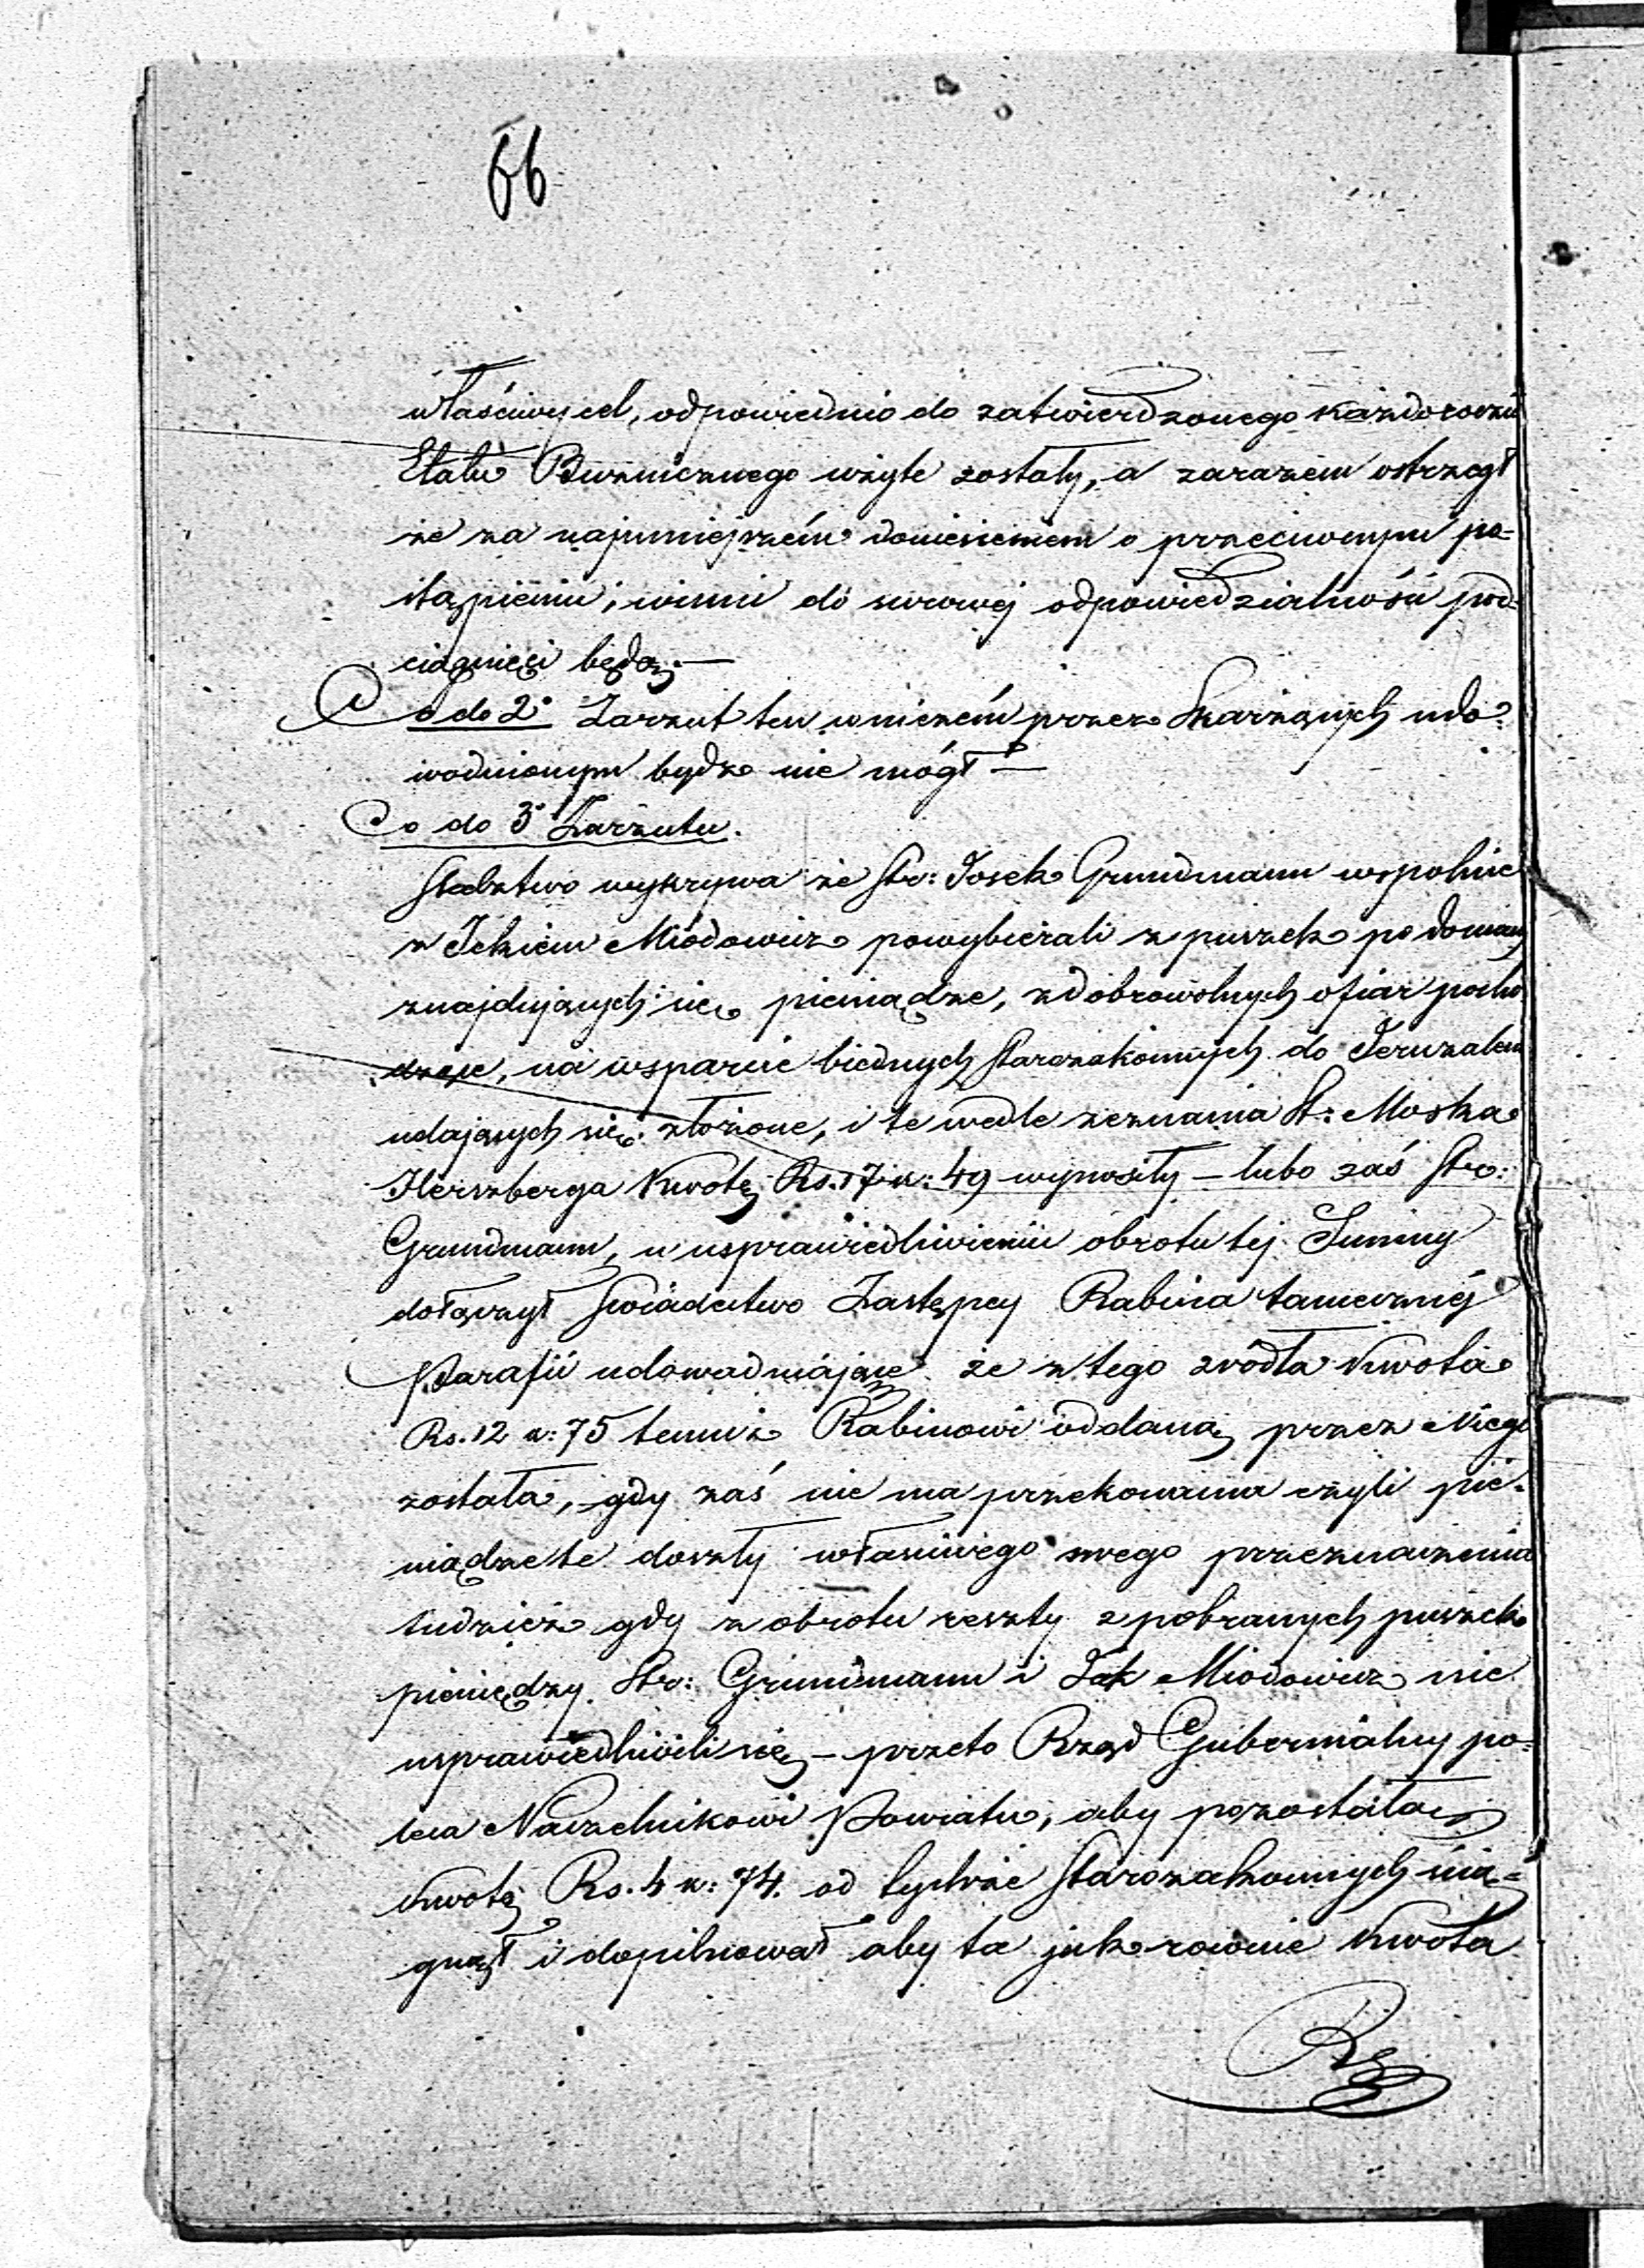 66
właściwych, odpowiednio do zatwierdzonego każdorocznie
Etatu Bużnicznego użyte zostały, a zarazem ostrzegł
że za najmniejszém doniesieniem o przeciwnym po-
stąpieniu, winni do surowej odpowiedzialności pod-
ciągnięci będą. —
Co do 2° Zarzut ten w niczém przez Skarżących udo-
wodnionym bydź nie mógł —
Co do 3° Zarzutu.
Śledztwo wykrywa że Str: Josek Grundmann wspolnie
z Ickiem Miodowicz powybierali z puszek po domach
znajdujących się pieniądze, z dobrowolnych ofiar pocho
dzące, na wsparcie biednych starozakonnych do Jeruzalem
udających się złożone, i te wedle zeznania St: Moska
Herszberga kwotę Rs. 17 k: 49 wynosiły — lubo zaś Str:
Grundmann, w usprawiedliwieniu obrotu tej Summy
dołączył świadectwo Zastępcy Rabina tamecznéj
Parafii udowadniające że z tego źródła kwota
Rs. 12 k: 75 temuż Rabinowi oddaną przez Niego
została, gdy zaś nie ma przekonania czyli pie-
niądze te doszły właściwego swego przeznaczenia
tudzież gdy z obrotu reszty z pobranych puszek
pieniędzy Str: Grundmann i Icek Miodowicz nie
usprawiedliwili się — przeto Rząd Gubernialny po-
leca Naczelnikowi Powiatu, aby pozostałą
kwotę Rs. 4 k: 74. od tychże starozakonnych ścią-
gnął i dopilnował aby ta jak rownie kwota